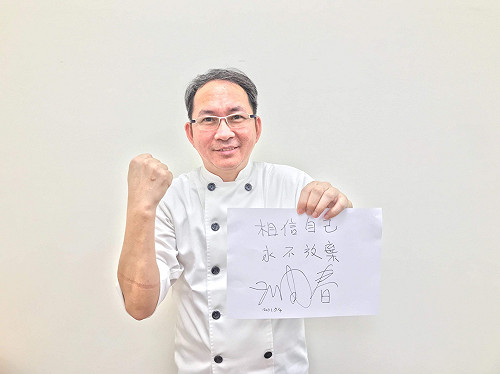 相信自己
永不放棄
春